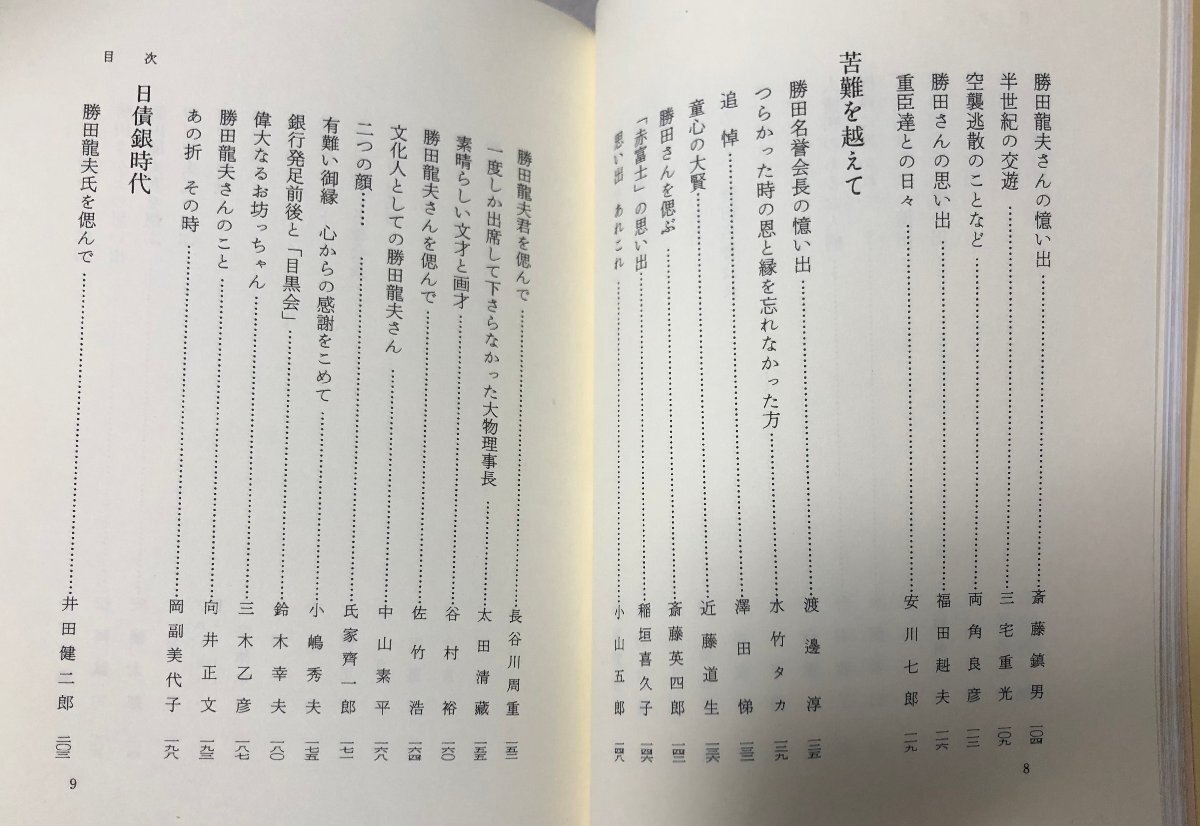 勝田龍夫さんの憶い出……斎藤鎮男 一〇四
半世紀の交遊……三宅重光 一〇九
空襲逃散のことなど……両角良彦 一一二
勝田さんの思い出……福田赳夫 一一六
重臣達との日々……安川七郎 一一九
苦難を越えて
勝田名誉会長の憶い出……渡邊淳 一二五
つらかった時の恩と縁を忘れなかった方……水竹タカ 一二九
追悼……澤田悌 一三二
童心の大賢……近藤道生 一三六
勝田さんを偲ぶ……斎藤英四郎 一四二
「赤富士」の思い出……稲垣喜久子 一四六
思い出 あれこれ……小山五郎 一四八
8
勝田龍夫君を偲んで……長谷川周重 一五二
一度しか出席して下さらなかった大物理事長……太田清蔵 一五五
素晴らしい文才と画才……谷村裕 一六〇
勝田龍夫さんを偲んで……佐竹浩 一六四
文化人としての勝田龍夫さん……中山素平 一六八
二つの顔……氏家齊一郎 一七一
有難い御縁 心からの感謝をこめて……小嶋秀夫 一七五
銀行発足前後と「目黒会」……鈴木幸夫 一八〇
偉大なるお坊っちゃん……三木乙彦 一八七
勝田龍夫さんのこと……向井正文 一九三
あの折 その時……岡副美代子 一九八
日債銀時代
勝田龍夫氏を偲んで……井田健二郎 二〇三
目次
9